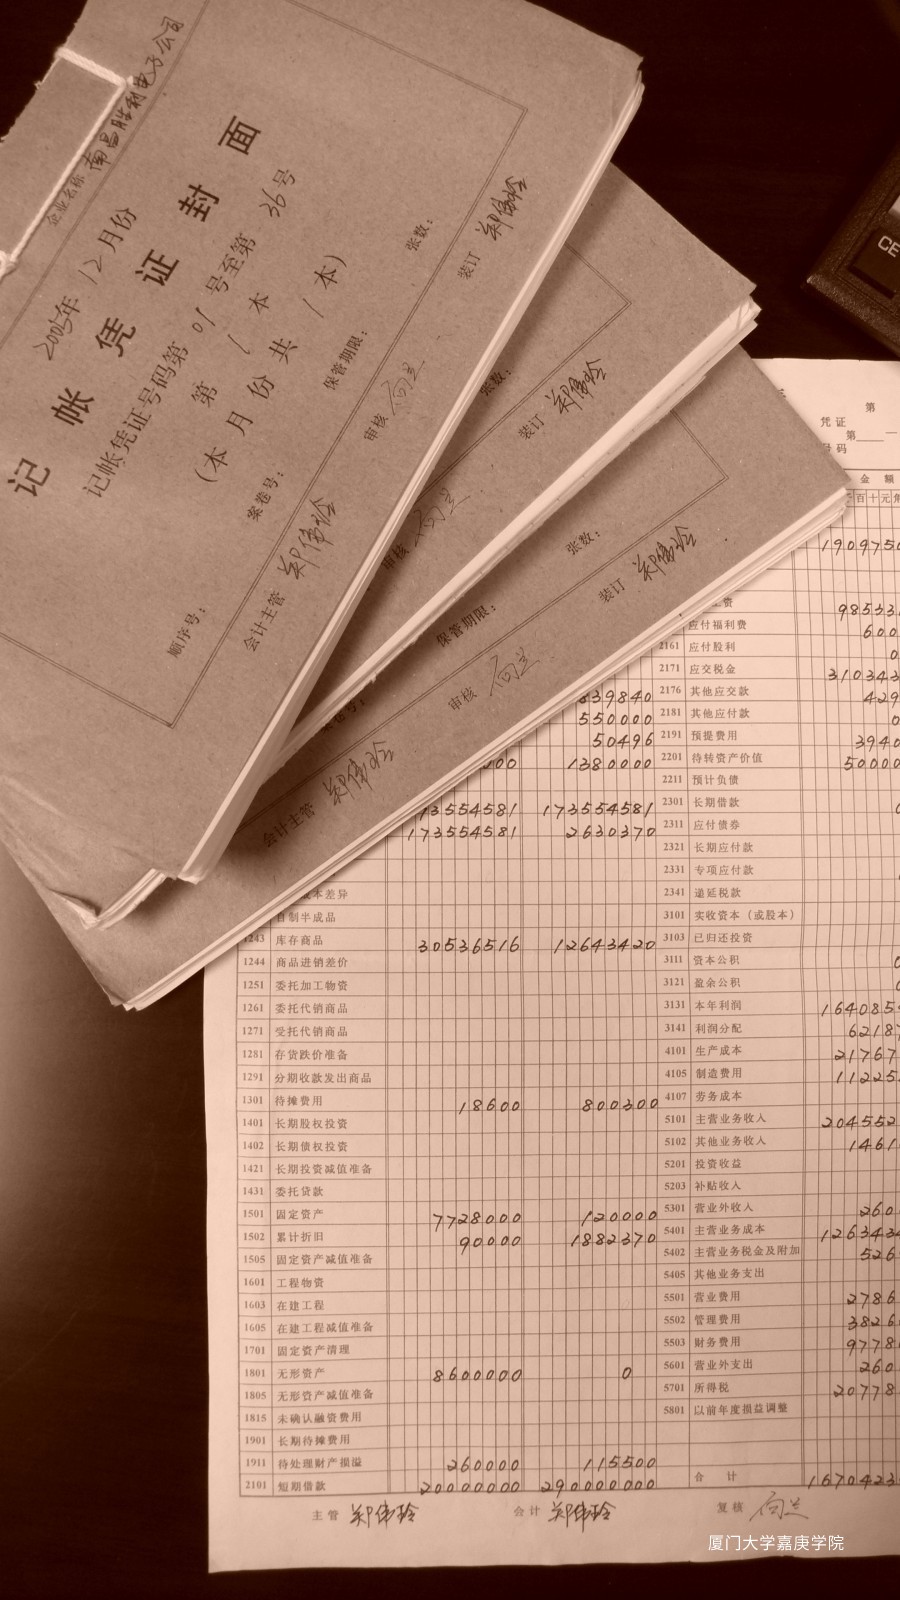 企业名称 南昌胜利电子公司
记帐凭证封面
2005年 12月份
记帐凭证号码第 01 号至第 36 号
第 1 本
(本月份共 1 本)
案卷号: 保管期限: 张数:
会计主管 郑伟玲 审核 向兰 装订 郑伟玲
顺序号:
张数:
审核 向兰 装订 郑伟玲
保管期限: 张数:
会计主管 郑伟玲 审核 向兰 装订 郑伟玲
CE
第
凭证
号码 第
金额
百十元角
190975
98533
应付福利费 600
2161 应付股利 0
2171 应交税金 310343
839840 2176 其他应交款 429
550000 2181 其他应付款 0
50496 2191 预提费用 3940
000 1380000 2201 待转资产价值 50000
2211 预计负债
173554581 173554581 2301 长期借款
173554581 2630370 2311 应付债券
2321 长期应付款
2331 专项应付款
成本差异 2341 递延税款
自制半成品 3101 实收资本(或股本)
1243 库存商品 30536516 12643420 3103 已归还投资
1244 商品进销差价 3111 资本公积 0
1251 委托加工物资 3121 盈余公积 0
1261 委托代销商品 3131 本年利润 164085
1271 受托代销商品 3141 利润分配 62187
1281 存货跌价准备 4101 生产成本 21767
1291 分期收款发出商品 4105 制造费用 11225
1301 待摊费用 18600 800300 4107 劳务成本
1401 长期股权投资 5101 主营业务收入 204552
1402 长期债权投资 5102 其他业务收入 1461
1421 长期投资减值准备 5201 投资收益
1431 委托贷款 5203 补贴收入
1501 固定资产 7728000 120000 5301 营业外收入 260
1502 累计折旧 90000 1882370 5401 主营业务成本 126343
1505 固定资产减值准备 5402 主营业务税金及附加 526
1601 工程物资 5405 其他业务支出
1603 在建工程 5501 营业费用 2786
1605 在建工程减值准备 5502 管理费用 3826
1701 固定资产清理 5503 财务费用 9778
1801 无形资产 8600000 0 5601 营业外支出 260
1805 无形资产减值准备 5701 所得税 20778
1815 未确认融资费用 5801 以前年度损益调整
1901 长期待摊费用
1911 待处理财产损溢 260000 115500
2101 短期借款 20000000 290000000 合计 1670423
主管 郑伟玲 会计 郑伟玲 复核 向兰
厦门大学嘉庚学院